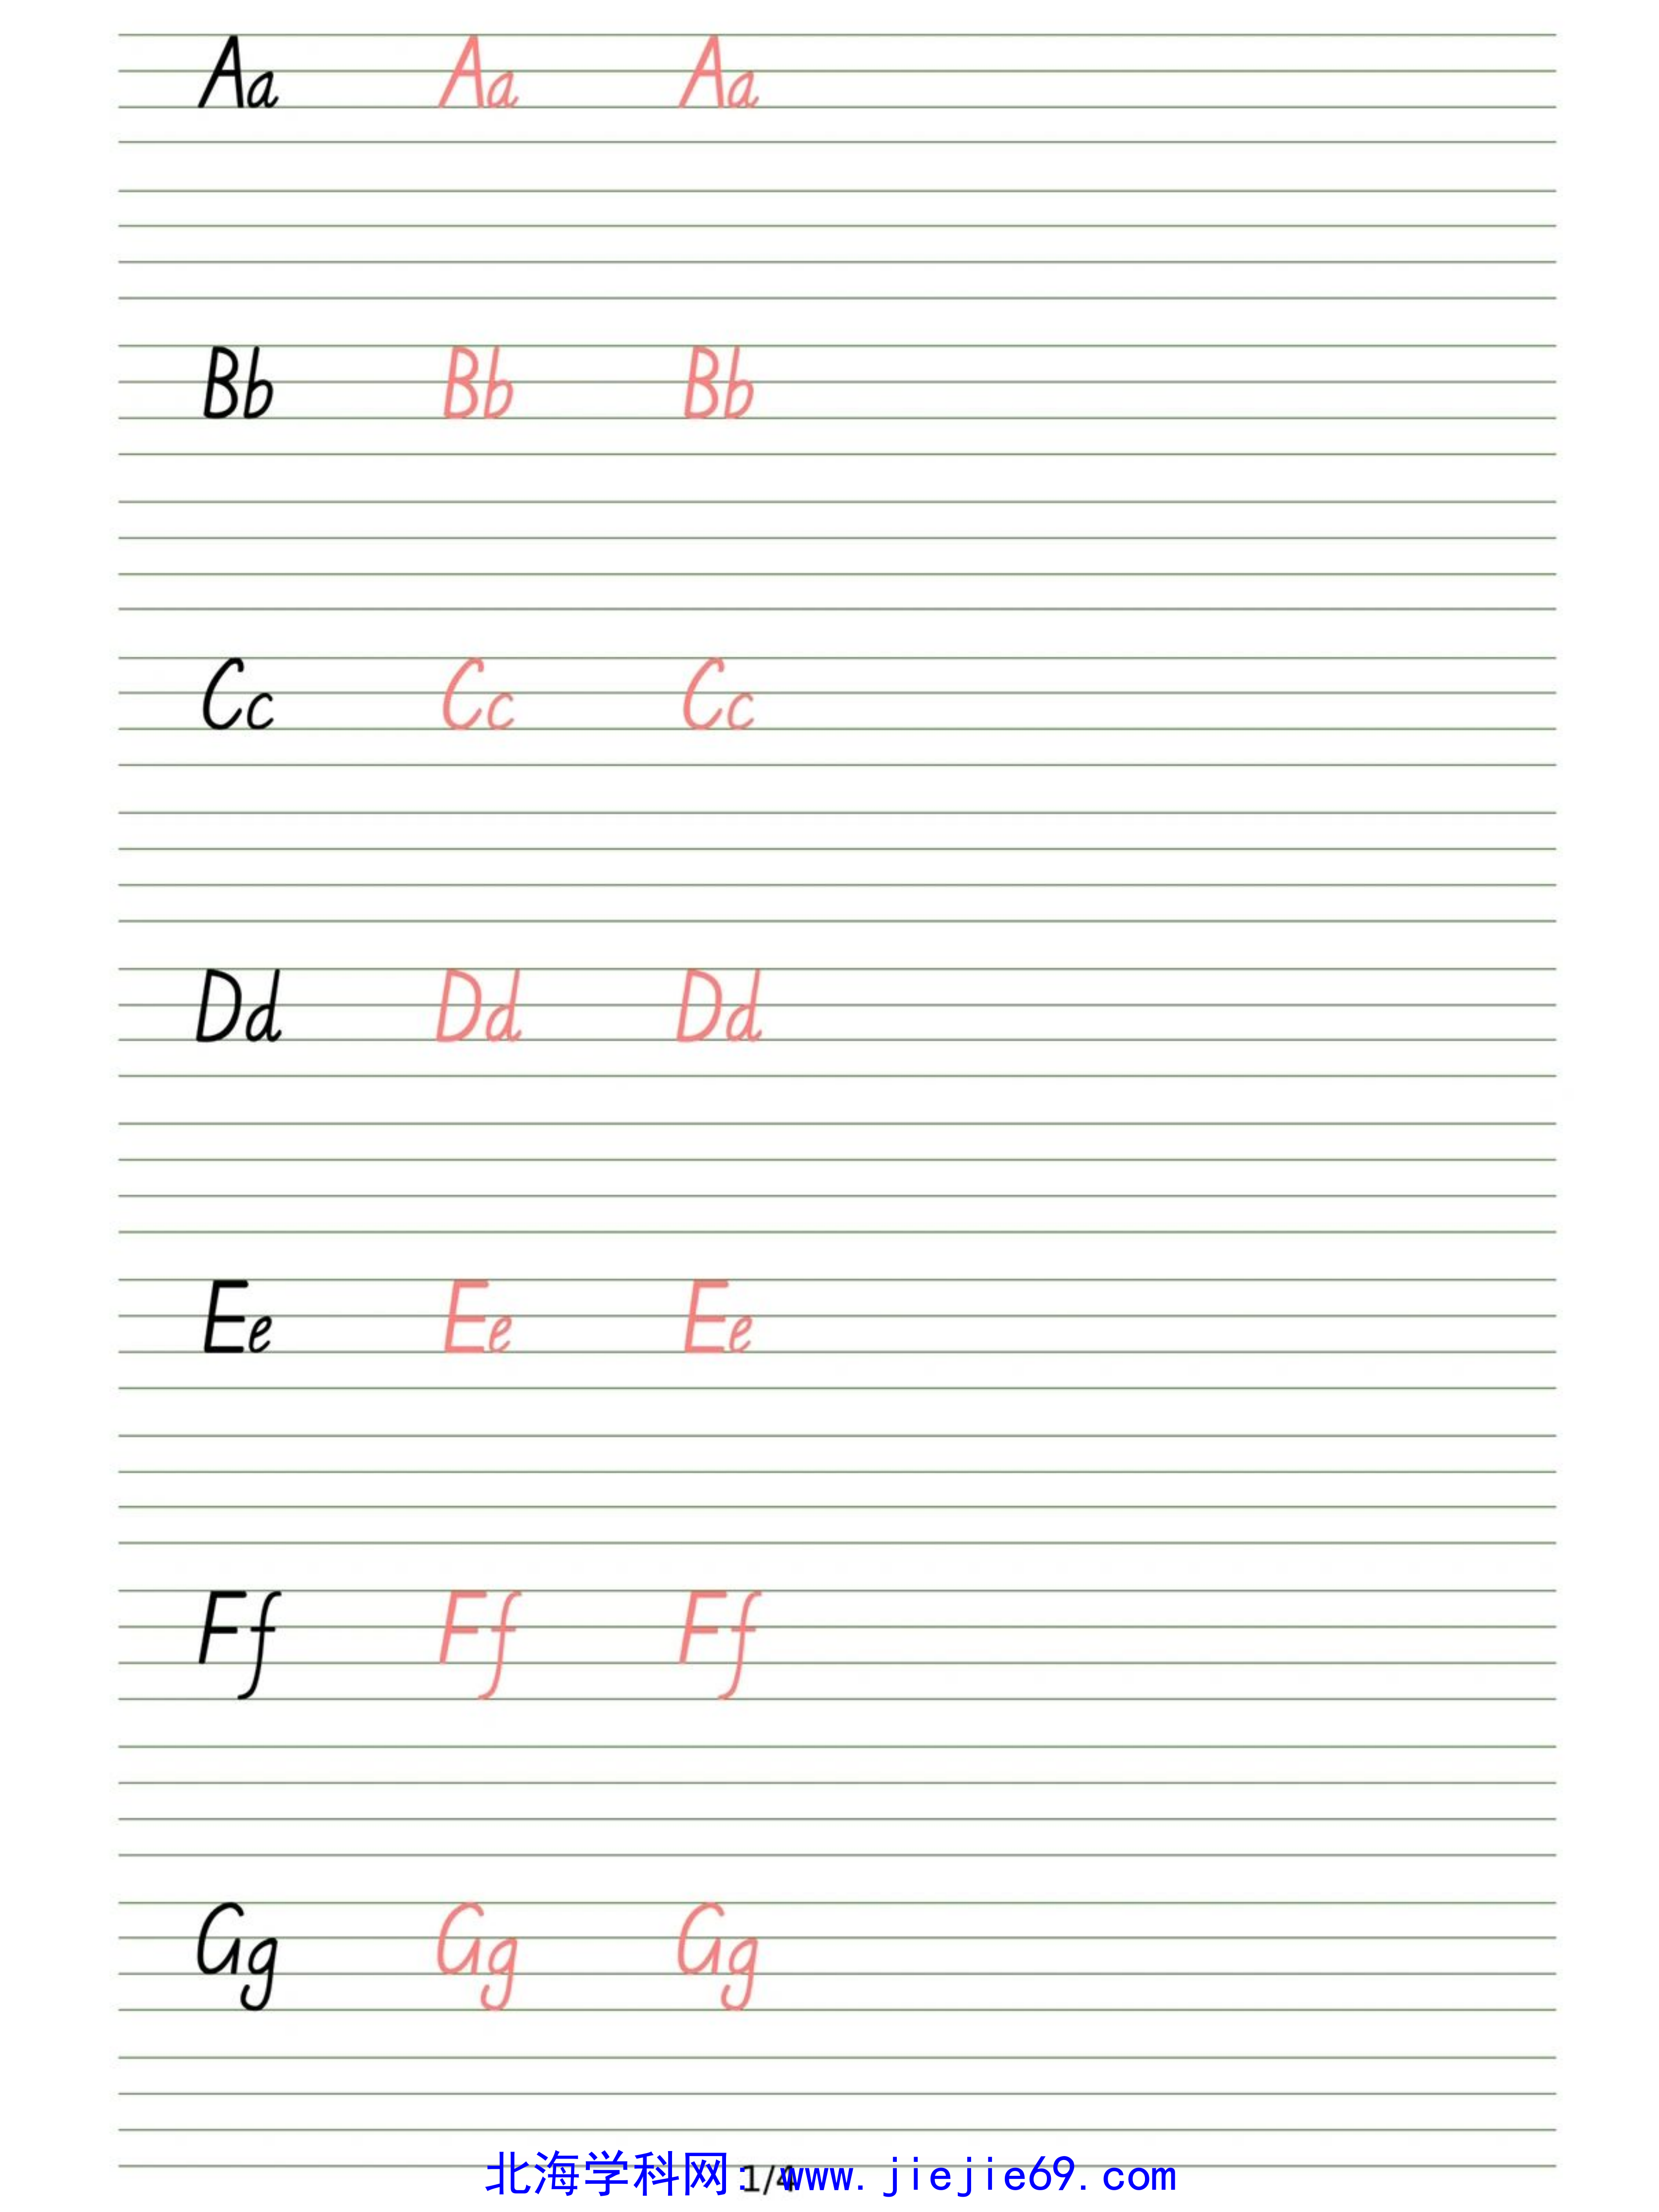 Aa Aa Aa
Bb Bb Bb
Cc Cc Cc
Dd Dd Dd
Ee Ee Ee
Ff Ff Ff
Gg Gg Gg
1/4
北海学科网：www.jiejie69.com